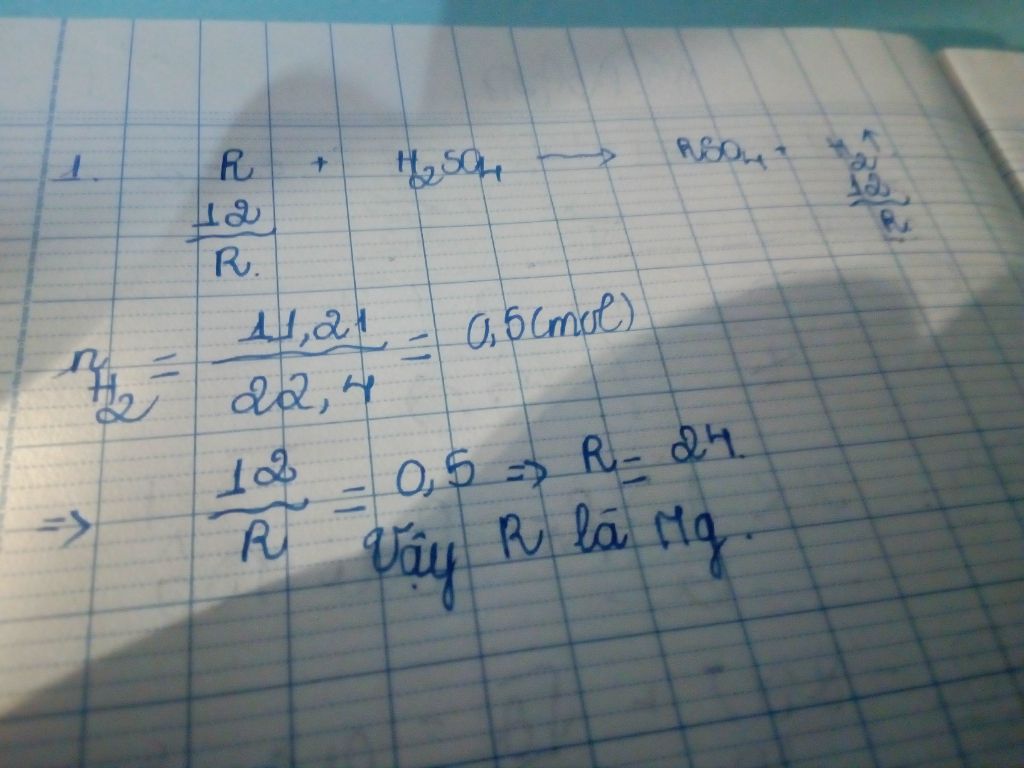 1. R + H₂SO₄ → RSO₄ + H₂ ↑
12/R 12/R
n H₂ = 11,21/22,4 = 0,5 (mol)
=> 12/R = 0,5 => R = 24.
Vậy R là Mg.